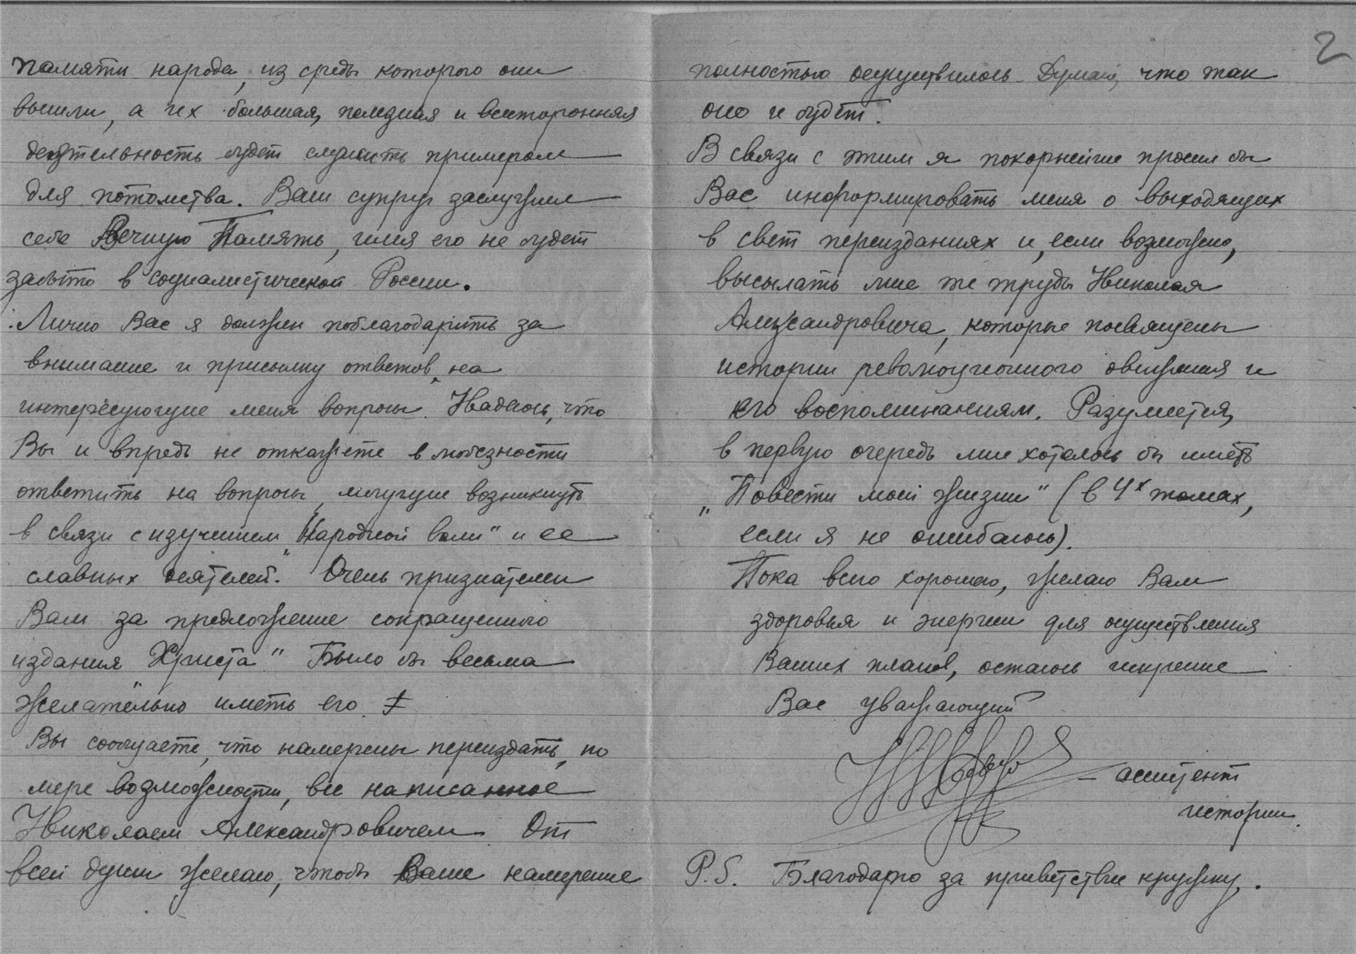 памяти народа, из среды которого они
вышли, а их большая, полезная и всесторонняя
деятельность будет служить примером
для потомства. Ваш супруг заслужил
себе Вечную Память, имя его не будет
забыто в социалистической России.
Лично Вас я должен поблагодарить за
внимание и присылку ответов на
интересующие меня вопросы. Надеюсь, что
Вы и впредь не откажете в любезности
ответить на вопросы, могущие возникнуть
в связи с изучением "Народной воли" и ее
славных деятелей. Очень признателен
Вам за предложение сокращенного
издания "Христа" Было бы весьма
желательно иметь его.
Вы сообщаете, что намерены переиздать, по
мере возможности, все написанное
Николаем Александровичем. От
всей души желаю, чтобы Ваше намерение
2
полностью осуществилось. Думаю, что так
оно и будет.
В связи с этим я покорнейше просил бы
Вас информировать меня о выходящих
в свет переизданиях и, если возможно,
высылать мне те труды Николая
Александровича, которые посвящены
истории революционного движения и
его воспоминаниям. Разумеется,
в первую очередь мне хотелось бы иметь
„Повести моей жизни" (в 4х томах,
если я не ошибаюсь).
Пока всего хорошего, желаю Вам
здоровья и энергии для осуществления
Ваших планов, остаюсь искренне
Вас уважающий
– ассистент
истории.
P.S. Благодарю за приветствие кружку.